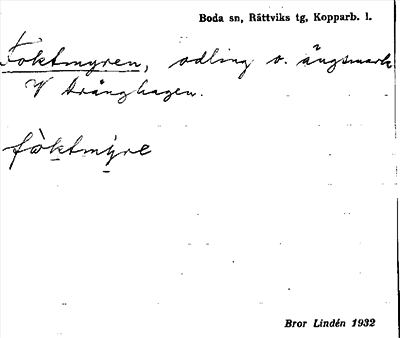 Boda sn, Rättviks tg, Kopparb. l.
Foktmyren, odling o. ängsmark
V Drånghagen.
fòktmýre
Bror Lindén 1932